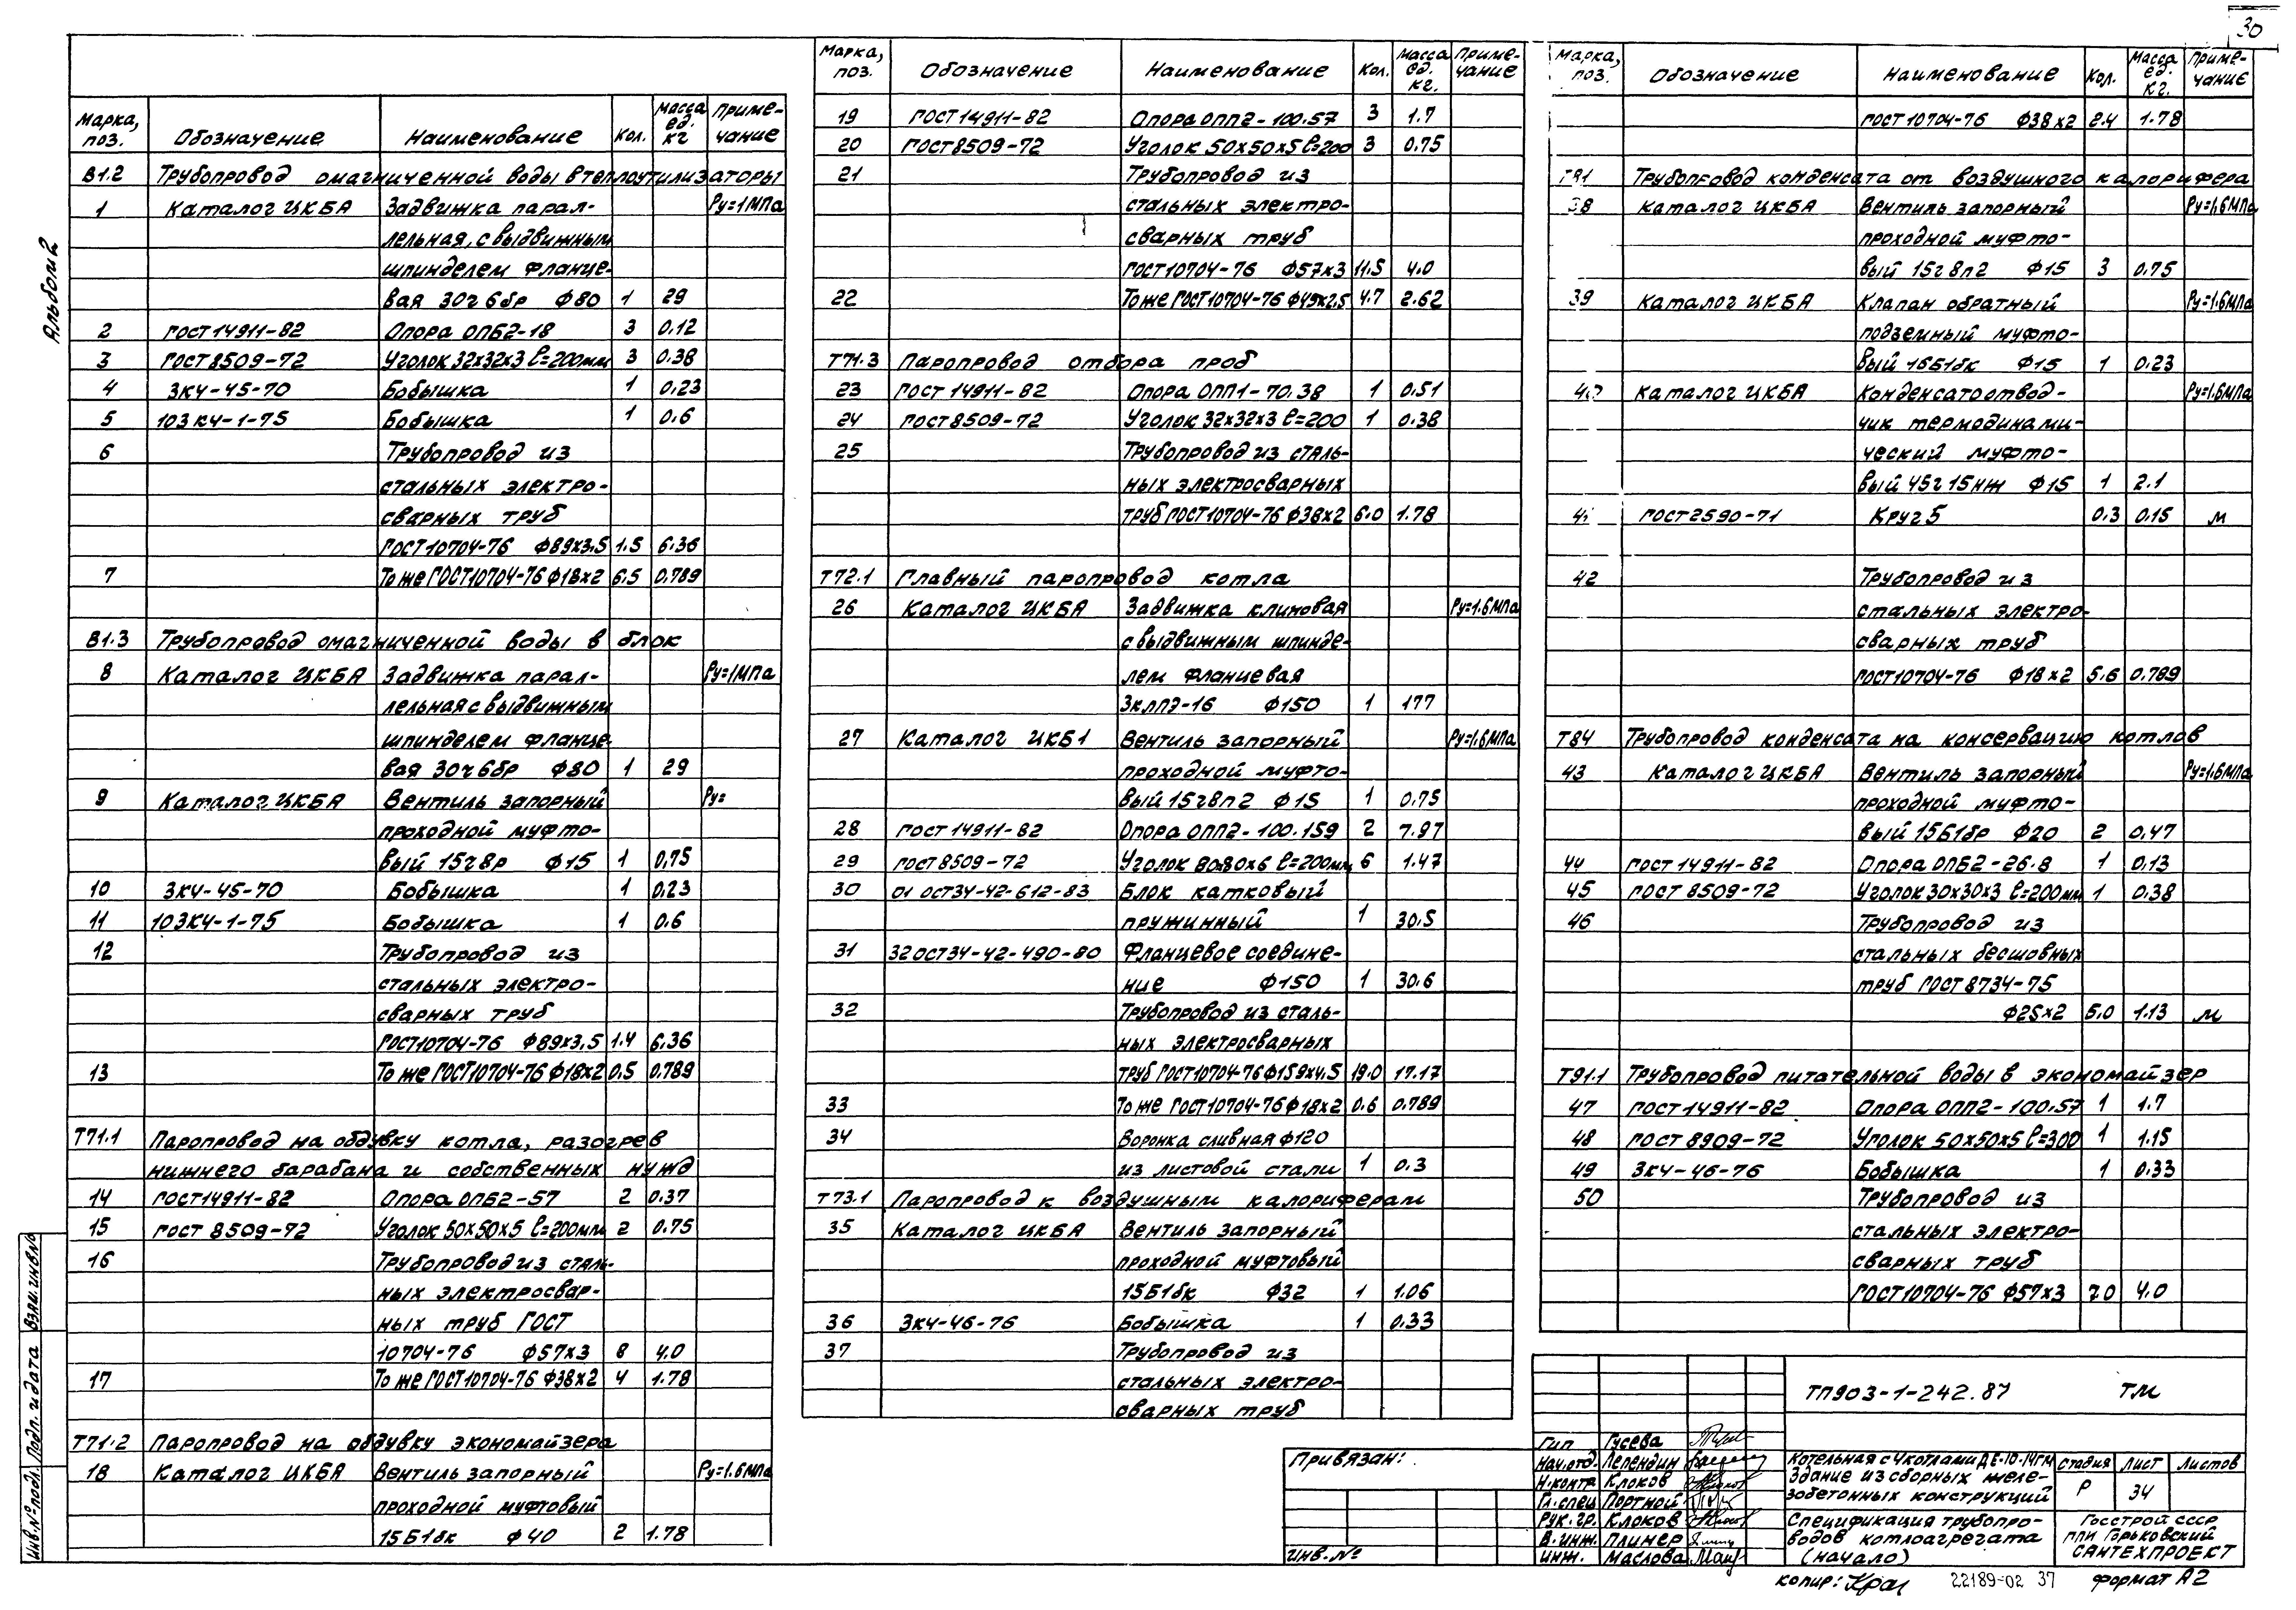 30
Альбом 2
Марка, поз. Обозначение Наименование Кол. Масса ед. кг Приме-чание
В1.2 Трубопровод омагниченной воды в теплоутилизаторы
1 Каталог ЦКБА Задвижка парал- Ру=1МПа
лельная, с выдвижным
шпинделем фланце-
вая 30ч6бр ф80 1 29
2 ГОСТ 14911-82 Опора ОПБ2-18 3 0.12
3 ГОСТ 8509-72 Уголок 32х32х3 ℓ=200мм 3 0.38
4 3К4-45-70 Бобышка 1 0.23
5 103К4-1-75 Бобышка 1 0.6
6 Трубопровод из
стальных электро-
сварных труб
ГОСТ 10704-76 ф89х3.5 1.5 6.36
7 То же ГОСТ 10704-76 ф18х2 6.5 0.789
В1.3 Трубопровод омагниченной воды в блок
8 Каталог ЦКБА Задвижка парал- Ру=1МПа
лельная с выдвижным
шпинделем фланце-
вая 30ч6бр ф80 1 29
9 Каталог ЦКБА Вентиль запорный Ру=
проходной муфто-
вый 15г8р ф15 1 0.75
10 3К4-45-70 Бобышка 1 0.23
11 103К4-1-75 Бобышка 1 0.6
12 Трубопровод из
стальных электро-
сварных труб
ГОСТ 10704-76 ф89х3.5 1.4 6.36
13 То же ГОСТ 10704-76 ф18х2 0.5 0.789
Т71.1 Паропровод на обдувку котла, разогрев
нижнего барабана и собственных нужд
14 ГОСТ 14911-82 Опора ОПБ2-57 2 0.37
15 ГОСТ 8509-72 Уголок 50х50х5 ℓ=200мм 2 0.75
16 Трубопровод из сталь-
ных электросвар-
ных труб ГОСТ
10704-76 ф57х3 8 4.0
17 То же ГОСТ 10704-76 ф38х2 4 1.78
Т71.2 Паропровод на обдувку экономайзера
18 Каталог ЦКБА Вентиль запорный Ру=1.6МПа
проходной муфтовый
15Б1бк ф40 2 1.78
Марка, поз. Обозначение Наименование Кол. Масса ед. кг. Приме-чание
19 ГОСТ 14911-82 Опора ОПП2-100.57 3 1.7
20 ГОСТ 8509-72 Уголок 50х50х5 ℓ=200 3 0.75
21 Трубопровод из
стальных электро-
сварных труб
ГОСТ 10704-76 ф57х3 11.5 4.0
22 То же ГОСТ 10704-76 ф45х2.5 4.7 2.62
Т71.3 Паропровод отбора проб
23 ГОСТ 14911-82 Опора ОПП1-70.38 1 0.51
24 ГОСТ 8509-72 Уголок 32х32х3 ℓ=200 1 0.38
25 Трубопровод из сталь-
ных электросварных
труб ГОСТ 10704-76 ф38х2 6.0 1.78
Т72.1 Главный паропровод котла
26 Каталог ЦКБА Задвижка клиновая Ру=1.6МПа
с выдвижным шпинде-
лем фланцевая
ЗКЛПЭ-16 ф150 1 177
27 Каталог ЦКБ1 Вентиль запорный Ру=1.6МПа
проходной муфто-
вый 15г8п2 ф15 1 0.75
28 ГОСТ 14911-82 Опора ОПП2-100.159 2 7.97
29 ГОСТ 8509-72 Уголок 80х80х6 ℓ=200мм 6 1.47
30 01 ОСТ34-42-612-83 Блок катковый
пружинный 1 30.5
31 32 ОСТ34-42-490-80 Фланцевое соедине-
ние ф150 1 30.6
32 Трубопровод из сталь-
ных электросварных
труб ГОСТ 10704-76 ф159х4.5 19.0 17.17
33 То же ГОСТ 10704-76 ф18х2 0.6 0.789
34 Воронка сливная ф120
из листовой стали 1 0.3
Т73.1 Паропровод к воздушным калориферам
35 Каталог ЦКБА Вентиль запорный
проходной муфтовый
15Б1бк ф32 1 1.06
36 3К4-46-76 Бобышка 1 0.33
37 Трубопровод из
стальных электро-
сварных труб
Марка, поз. Обозначение Наименование Кол. Масса ед. кг. Приме-чание
ГОСТ 10704-76 ф38х2 2.4 1.78
Т81 Трубопровод конденсата от воздушного калорифера
38 Каталог ЦКБА Вентиль запорный Ру=1,6МПа
проходной муфто-
вый 15г8п2 ф15 3 0.75
39 Каталог ЦКБА Клапан обратный Ру=1.6МПа
подземный муфто-
вый 16Б1бк ф15 1 0.23
40 Каталог ЦКБА Конденсатоотвод- Ру=1.6МПа
чик термодинами-
ческий муфто-
вый 45г15нж ф15 1 2.1
41 ГОСТ 2590-71 Круг 5 0.3 0.15 м
42 Трубопровод из
стальных электро-
сварных труб
ГОСТ 10704-76 ф18х2 5.6 0.789
Т84 Трубопровод конденсата на консервацию котлов
43 Каталог ЦКБА Вентиль запорный Ру=1.6МПа
проходной муфто-
вый 15Б1бр ф20 2 0.47
44 ГОСТ 14911-82 Опора ОПБ2-26.8 1 0.13
45 ГОСТ 8509-72 Уголок 30х30х3 ℓ=200мм 1 0.38
46 Трубопровод из
стальных бесшовных
труб ГОСТ 8734-75
ф25х2 5.0 1.13 м
Т91.1 Трубопровод питательной воды в экономайзер
47 ГОСТ 14911-82 Опора ОПП2-100.57 1 1.7
48 ГОСТ 8909-72 Уголок 50х50х5 ℓ=300 1 1.15
49 3К4-46-76 Бобышка 1 0.33
50 Трубопровод из
стальных электро-
сварных труб
ГОСТ 10704-76 ф57х3 7.0 4.0
ТП903-1-242.87 ТМ
Привязан:
Инв.№
Гип Гусева
Нач.отд. Лепендин
Н.контр Клоков
Гл.спец Портной
Рук.гр. Клоков
В.инж. Плинер
Инж. Маслова
Котельная с 4 котлами ДЕ-10-14ГМ
Здание из сборных желе-
зобетонных конструкций
Стадия Лист Листов
Р 34
Спецификация трубопро-
водов котлоагрегата
(начало)
Госстрой СССР
ГПИ Горьковский
САНТЕХПРОЕКТ
Копир: 22189-02 37 Формат А2
Инв.№ подл. Подп. и дата Взам.инв.№